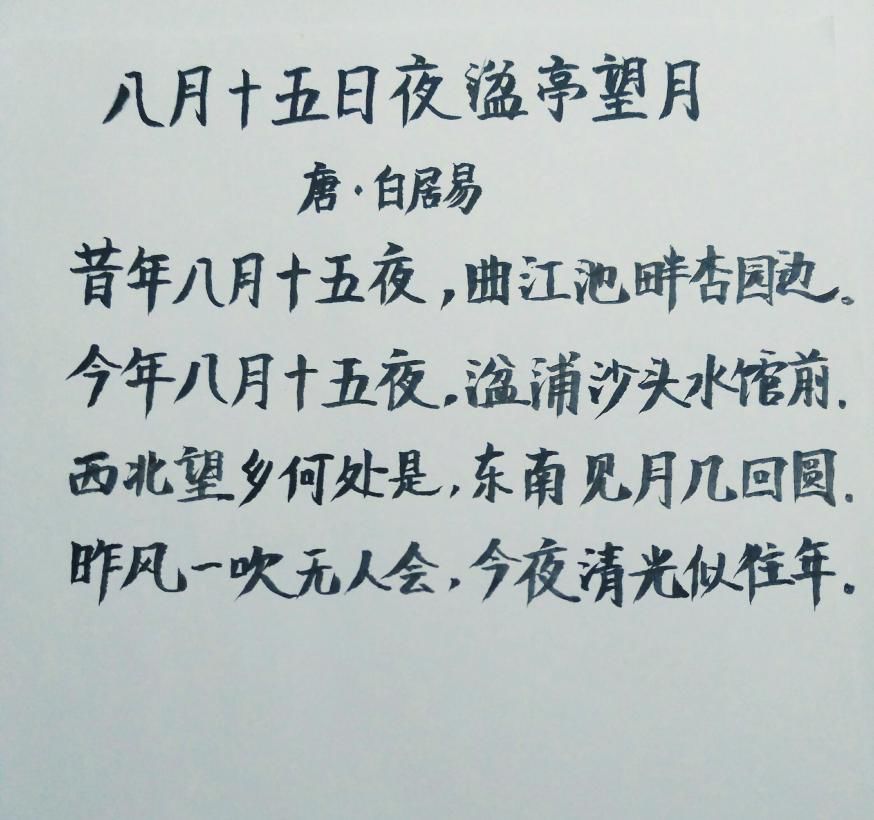 八月十五日夜湓亭望月
唐·白居易
昔年八月十五夜,曲江池畔杏园边。
今年八月十五夜,湓浦沙头水馆前.
西北望乡何处是,东南见月几回圆.
昨风一吹无人会,今夜清光似往年.